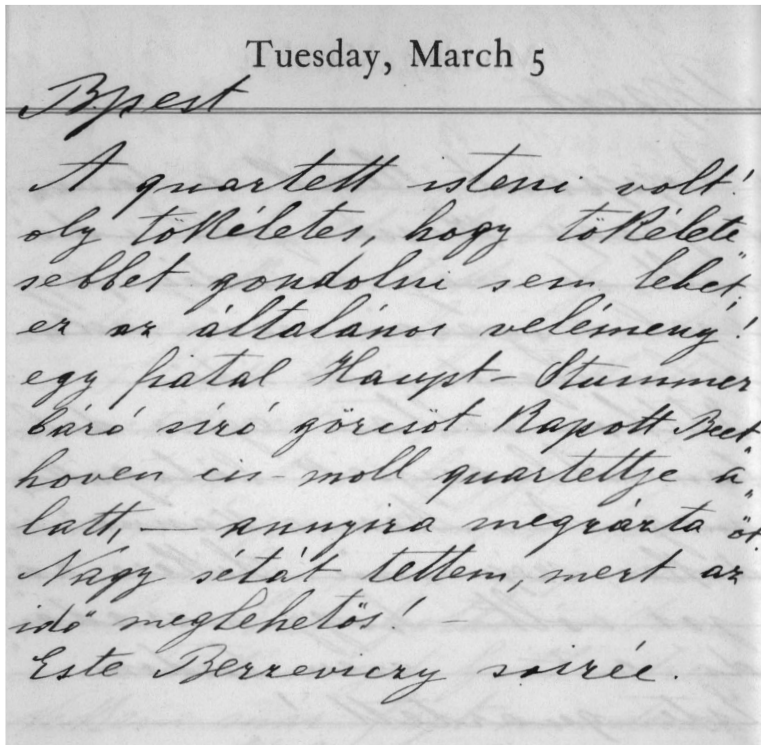 Tuesday, March 5
Bpest
A quartett isteni volt!
oly tökéletes, hogy tökélete"
sebbet gondolni sem lehet;
ez az általános vélemény!
egy fiatal Haupt-Stummer
báró síró görcsöt kapott Beet"
hoven cis-moll quartettje a"
latt, — annyira megrázta őt.
Nagy sétát tettem, mert az
idő meglehetős! –
Este Berzeviczy soirée.